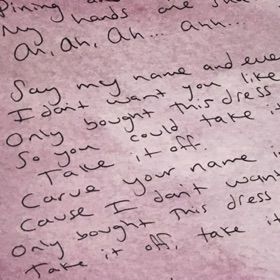 Pining an
My hands are sha
Ah, Ah, Ah... ahh...
Say my name and eve
I don't want you like
Only bought this dress
So you could take it
Take it off.
Carve your name i
Cause I don't want
Only bought this dress
Take it off, take it